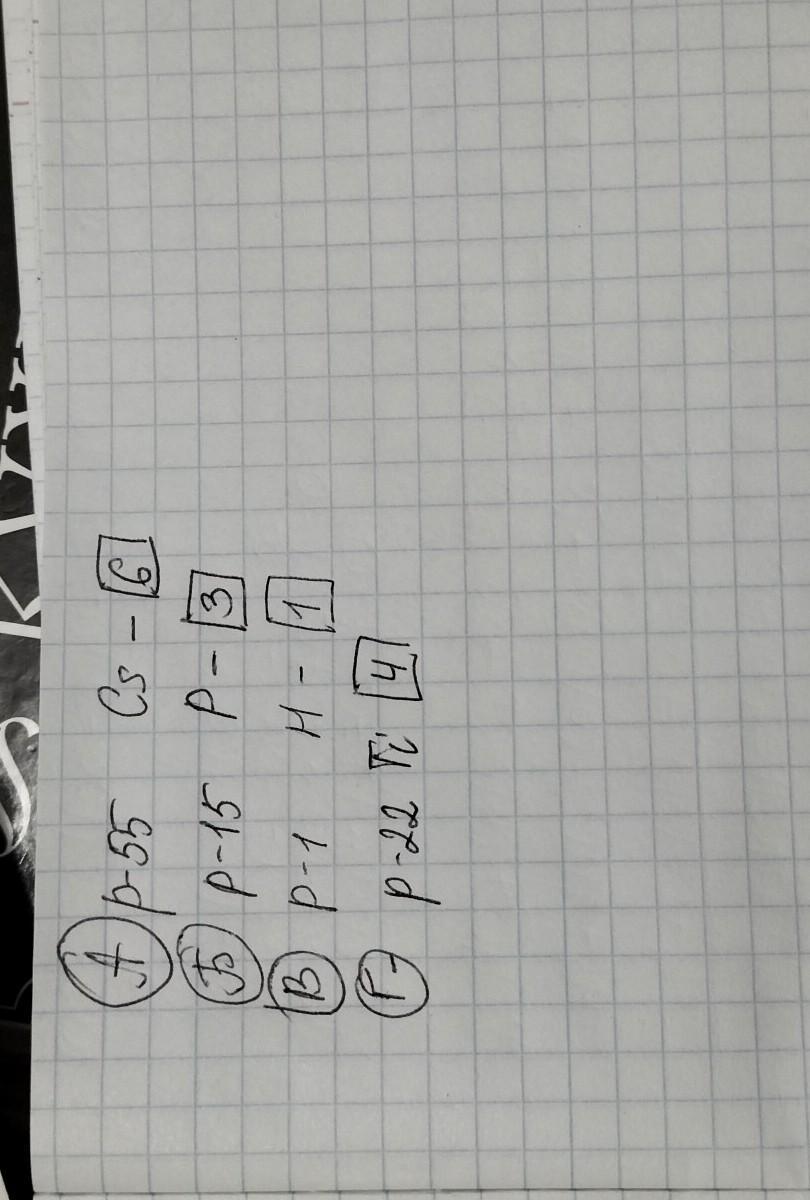 А р-55 Cs - 6
Б р-15 P - 3
В р-1 H - 1
Г р-22 Ti 4